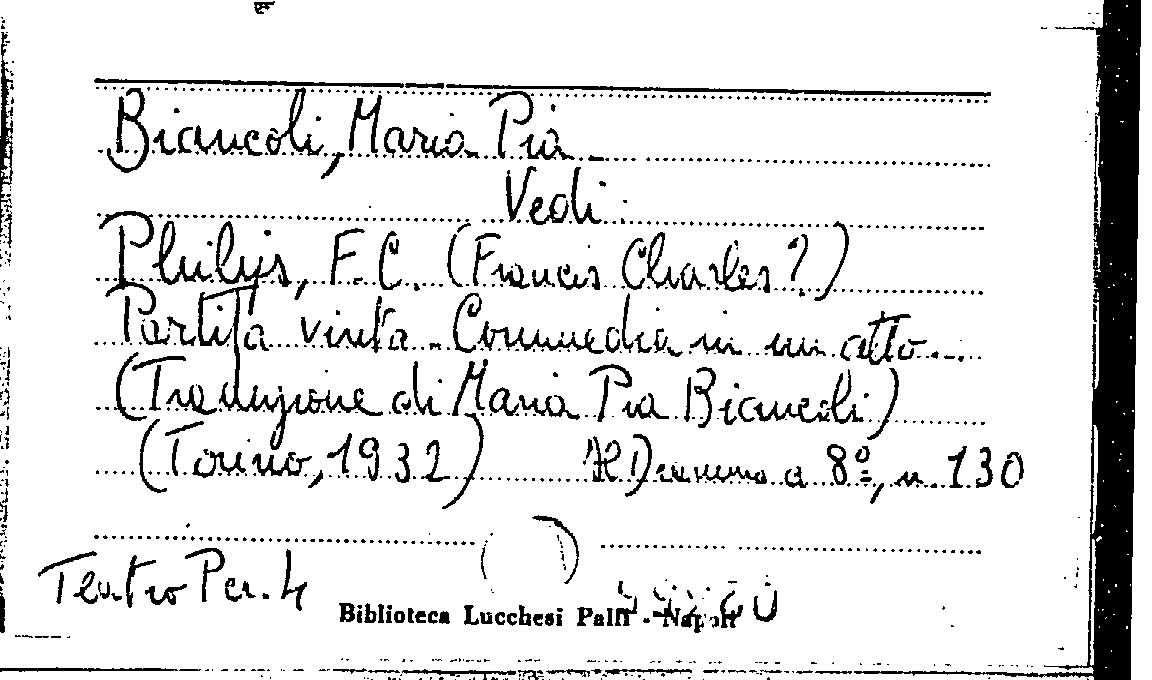 Biancoli, Maria Pia
Vedi:
Philijs, F. C. (Francis Charles?)
Partita vinta - Commedia in un atto...
(Traduzione di Maria Pia Biancoli)
(Torino, 1932) Il Dramma a 8º, n. 130
Teatro Per. 4
Biblioteca Lucchesi Palli - Napoli